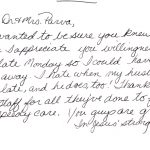 Dr. & Mrs. Parva,
wanted to be sure you knew
I appreciate you willingness
late Monday so I could
away. I hate when my
late, and he does too! Thank
staff for all they've done to
speedy care. You guys are
In Jesus' strong